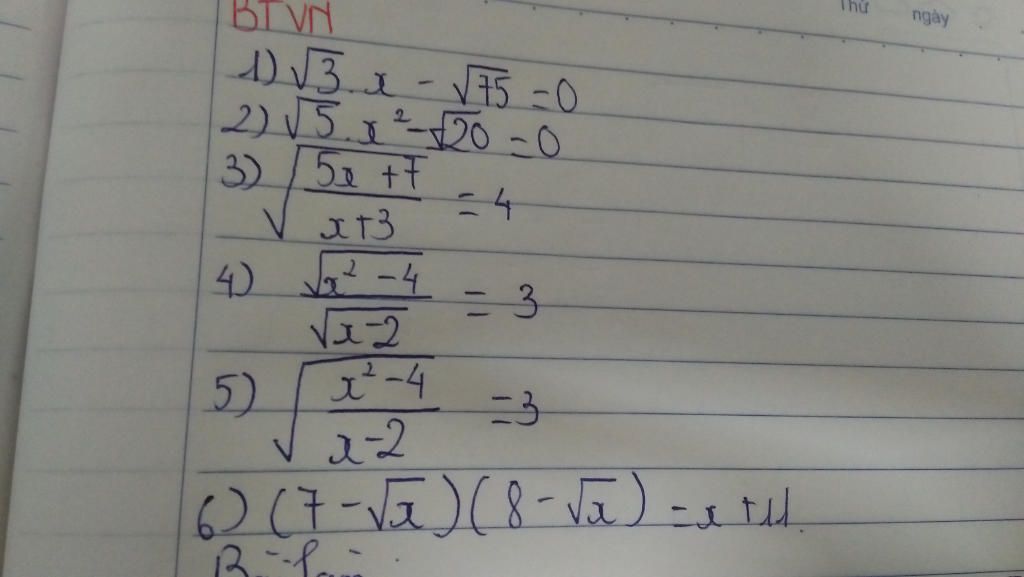 Thứ ngày
BTVN
1) √3. x - √75 = 0
2) √5. x² - √20 = 0
3) √((5x + 7)/(x + 3)) = 4
4) √(x² - 4)/√(x - 2) = 3
5) √((x² - 4)/(x - 2)) = 3
6) (7 - √x)(8 - √x) = x + 11.